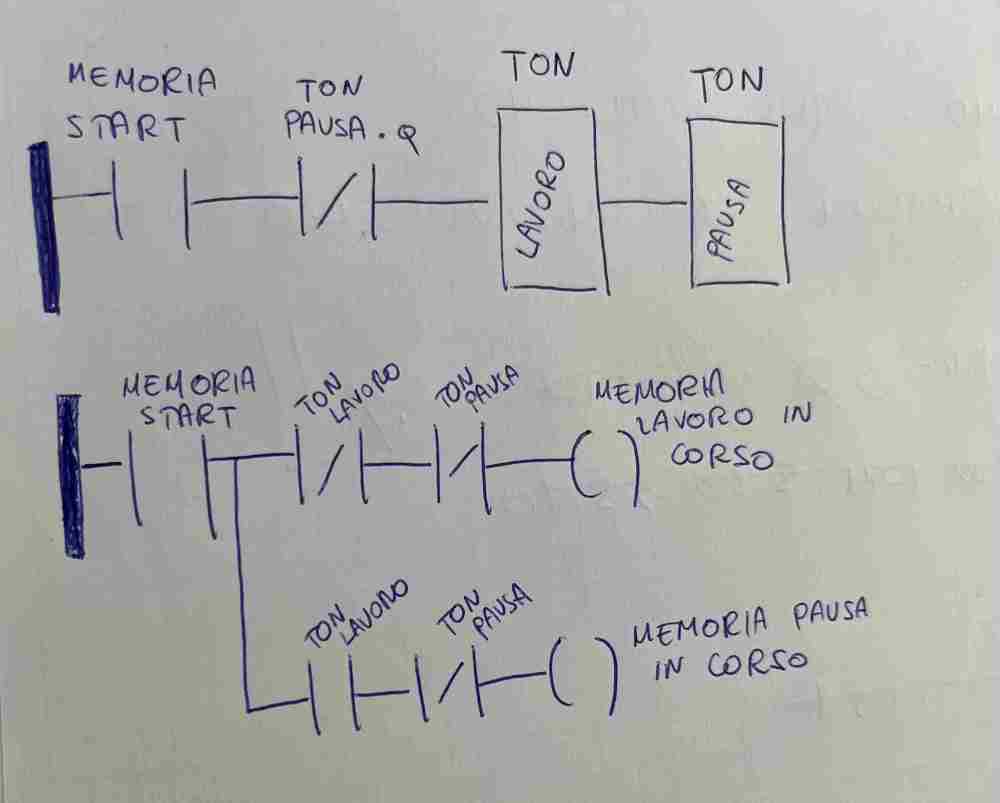 MEMORIA
START
TON
PAUSA.Q
TON
LAVORO
TON
PAUSA
MEMORIA
START
TON
LAVORO
TON
PAUSA
MEMORIA
LAVORO IN
CORSO
TON
LAVORO
TON
PAUSA
MEMORIA PAUSA
IN CORSO